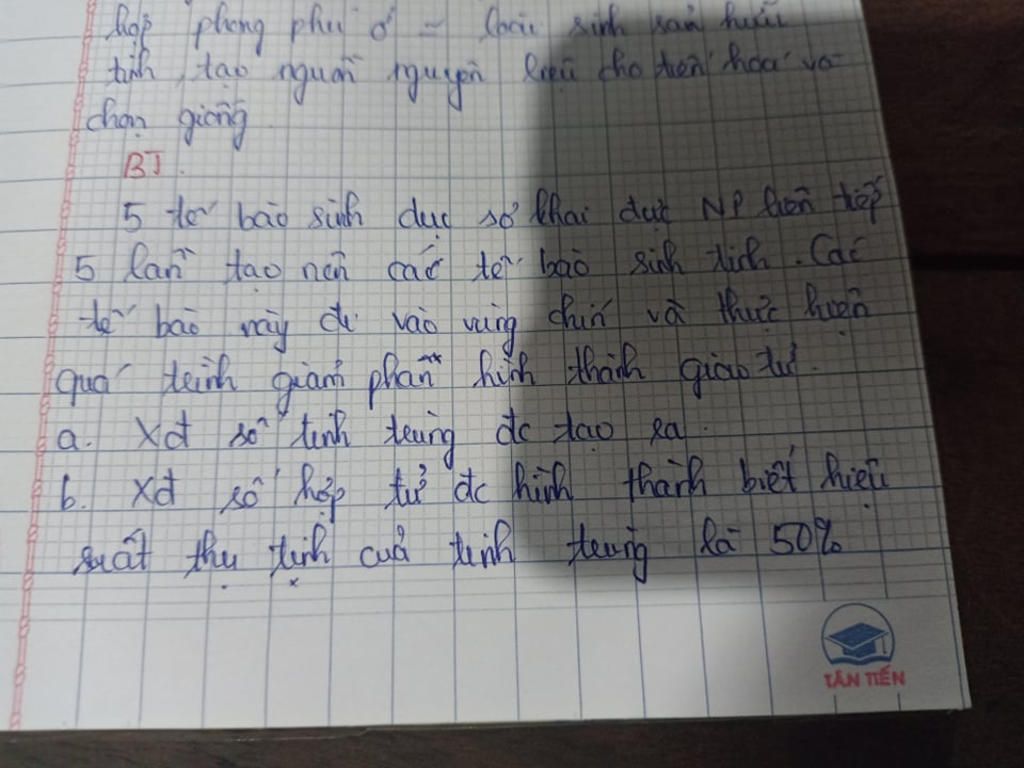 hợp phong phú ở - loài sinh sản hữu
tính, tạo nguồn nguyên liệu cho tiến hóa và
chọn giống
BT.
5 tế bào sinh dục sơ khai đực NP liên tiếp
5 lần tạo nên các tế bào sinh tinh. Các
tế bào này đi vào vùng chín và thực hiện
quá trình giảm phân hình thành giao tử.
a. Xđ số tinh trùng đc tạo ra.
b. Xđ số hợp tử đc hình thành biết hiệu
suất thụ tinh của tinh trùng là 50%
TÂN TIẾN